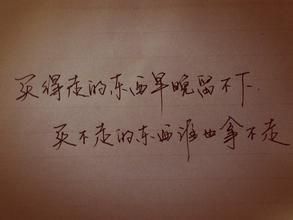 买得走的东西早晚留不下.
买不走的东西谁也拿不走